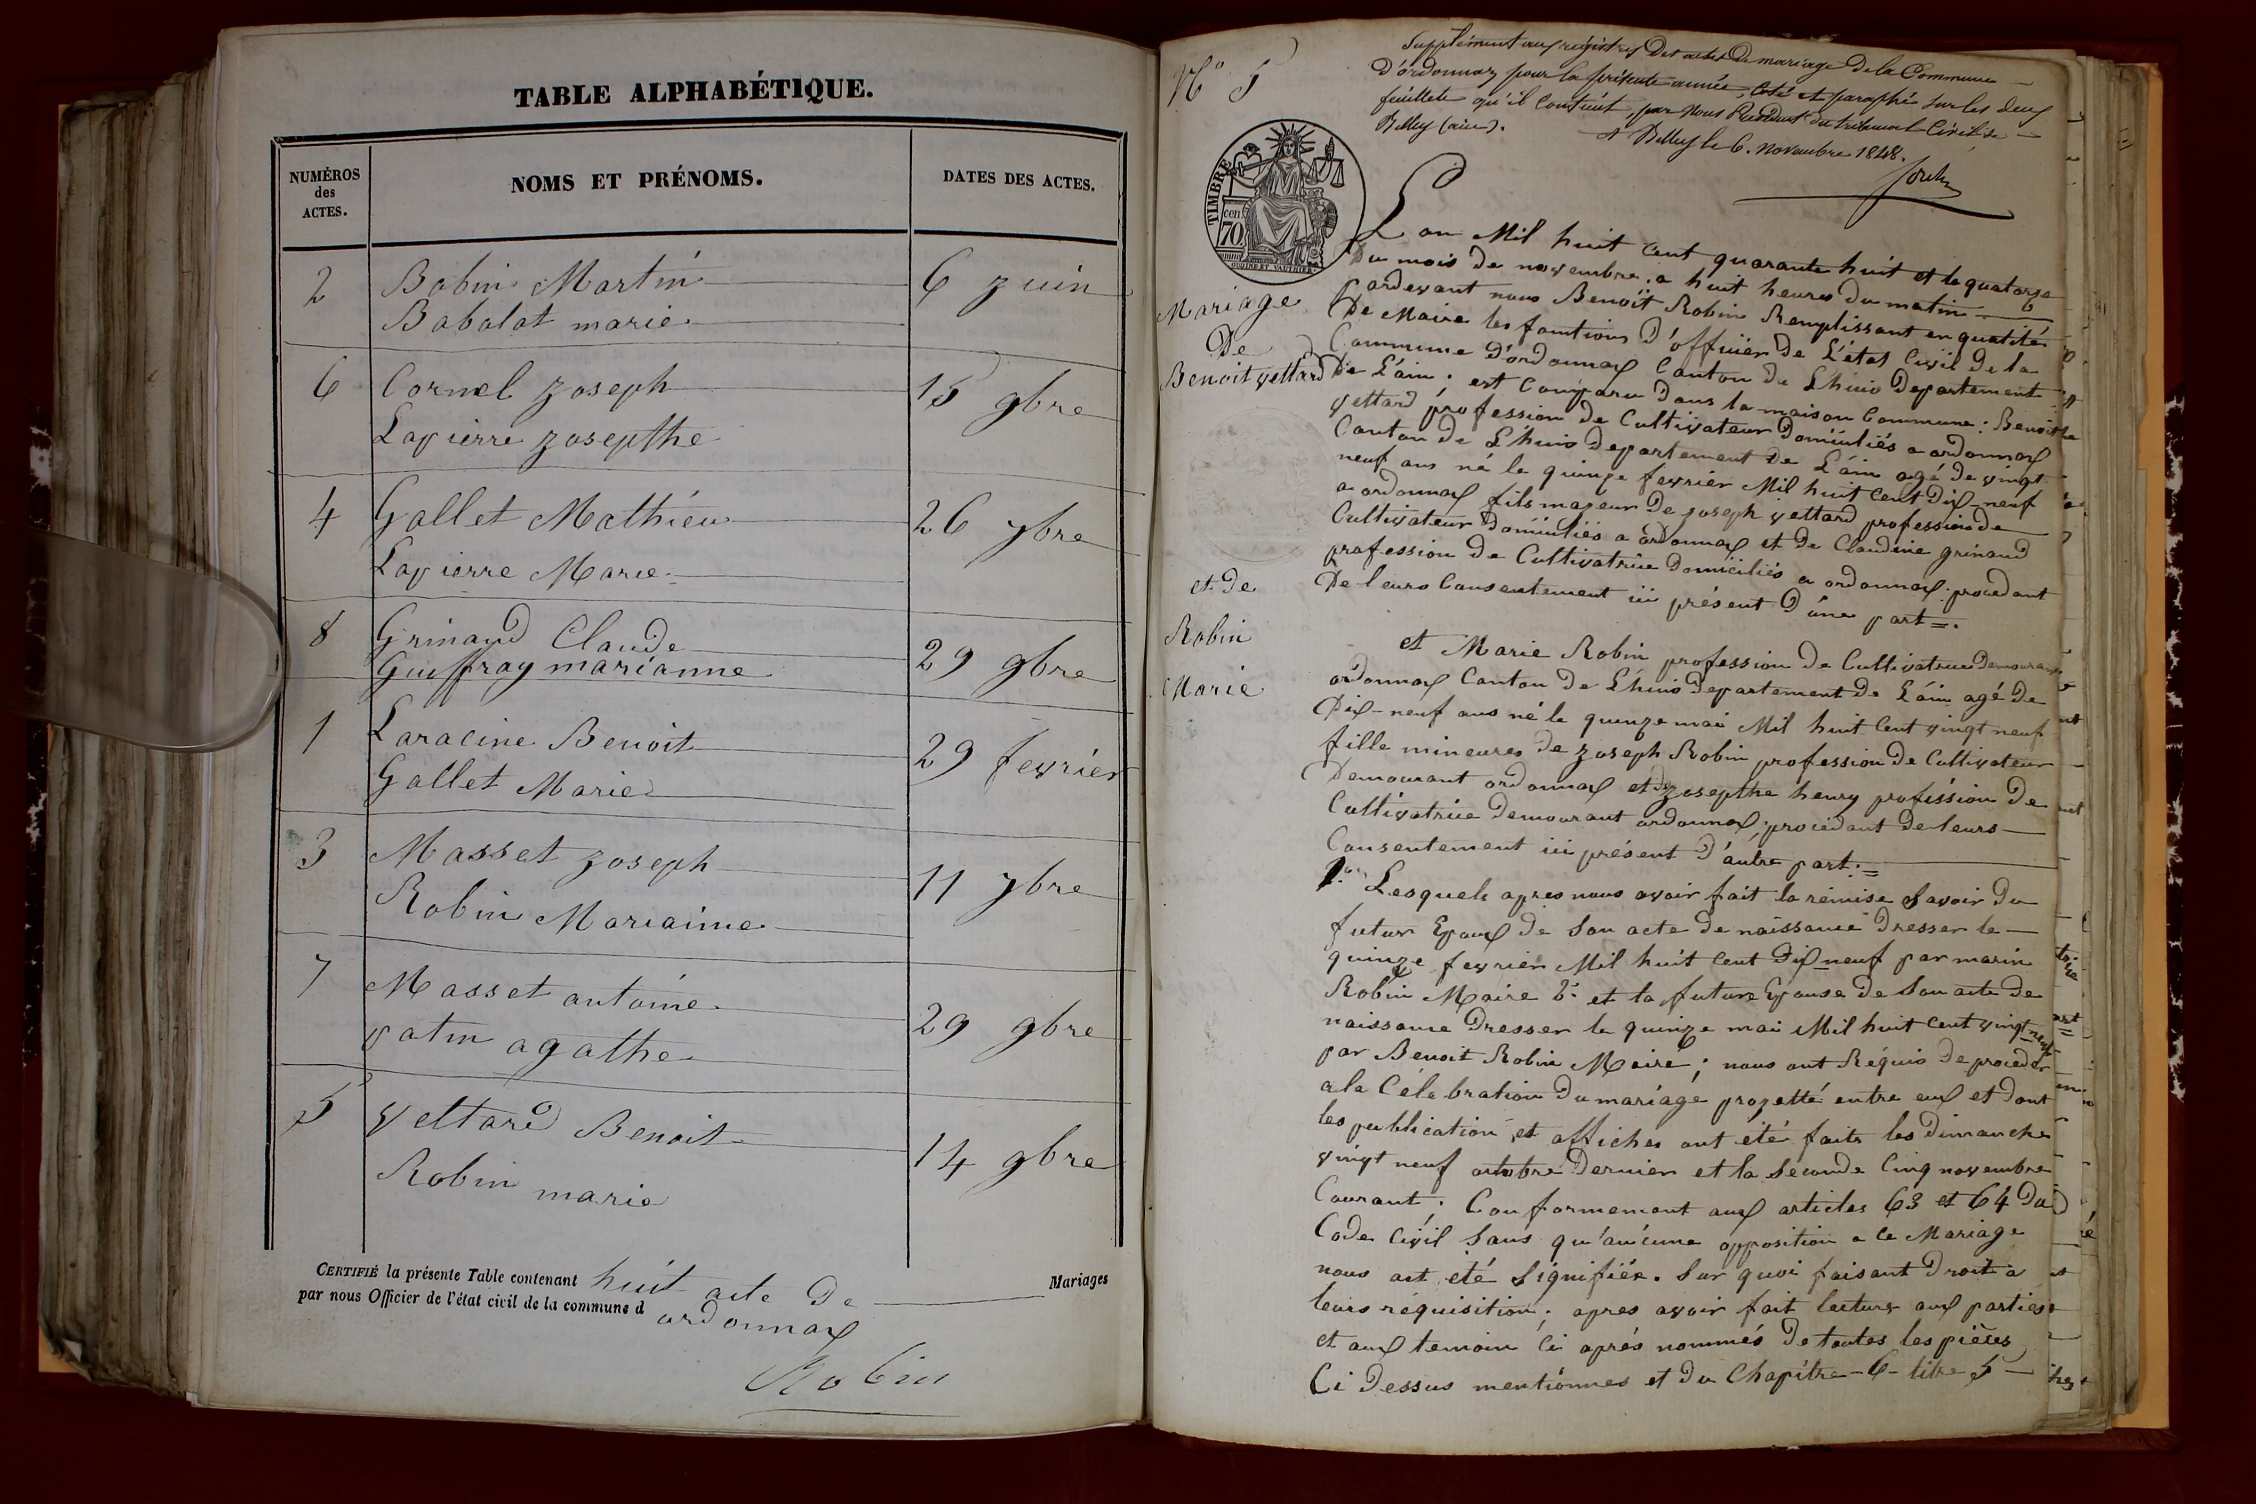 TABLE ALPHABÉTIQUE.
NUMÉROS
des
ACTES.
NOMS ET PRÉNOMS.
DATES DES ACTES.
2 Bobin Martin 6 juin
Babolat marie
6 Cornel Joseph 15 9bre
Lapierre Josepthe
4 Gallet Mathieu 26 7bre
Lapierre Marie
8 Grinand Claude
Guiffray marianne 29 9bre
1 Laracine Benoit 29 fevrier
Gallet Marie
3 Masset Joseph 11 7bre
Robin Mariaine
7 Masset antoine 29 9bre
vatin agathe
5 Vettard Benoit 14 9bre
Robin marie
CERTIFIÉ la présente Table contenant huit acte de Mariages
par nous Officier de l'état civil de la commune d ordonnax
Robin
N° 5
Supplément aux régistres des actes de mariage de la Commune
d'ordonnaz pour la présente année, Coté et paraphé sur les deux
feuillets qu'il Contient, par Nous Président du tribunal Civil de
Belley (ain). A Belley le 6. Novembre 1848.
TIMBRE
70 cen.
Mariage
De
Benoit vettard
et de
Robin
Marie
L'an Mil huit cent quarante huit et le quatorze
Du mois de novembre, a huit heures du matin
Pardevant nous Benoît Robin Remplissant en qualité
De Maire les fonctions D'officier de L'état Civil de la
Commune D'ordonnax Canton de Lhuis Departement
De L'ain, est Comparu Dans la maison Commune: Benoit
vettard profession de Cultivateur Domiciliés a ordonnax
Canton de L'huis Departement de L'ain agé de vingt
neuf ans né le quinze fevrier Mil huit Cent Dix-neuf
a ordonnax fils majeur De joseph vettard profession de
Cultivateur Domiciliés a ordonnax et de Claudine grinand
profession de Cultivatrice Domiciliés a ordonnax procedant
De leurs Consentement ici présent D'une part=.
et Marie Robin profession de Cultivatrice Demeurant
ordonnax Canton De Lhuis Departement De L'ain agé De
Dix-neuf ans né le quinze mai Mil huit Cent vingt neuf
fille mineures de Joseph Robin profession De Cultivateur
Demeurant ordonnax et de Josepthe henry profession De
Cultivatrice Demeurant ordonnax; procédant De leurs
Consentement ici présent D'autre part:=
Lesquels apres nous avoir fait la remise Savoir Du
futur Epoux de Son acte De naissance Dresser le
quinze fevrier Mil huit Cent Dix-neuf par marin
Robin Maire 2° et la future Epouse De Son acte De
naissance Dresser le quinze mai Mil huit Cent vingt neuf
par Benoit Robin Maire; nous ont Réquis De proceder
a la Célebration Du mariage projetté entre eux et Dont
les publication et affiches ont été faits les Dimanche
vingt neuf octobre Dernier et la Seconde Cinq novembre
Courant; Conformement aux articles 63 et 64 Du
Code Civil Sans qu'aucune opposition a Ce Mariage
nous ait été Signifiée. Sur quoi faisant Droit a
leurs réquisition; apres avoir fait lecture aux parties
et aux temoin Ci aprés nommés De toutes les pièces
Ci Dessus mentionnes et Du Chapitre-6-titre 5